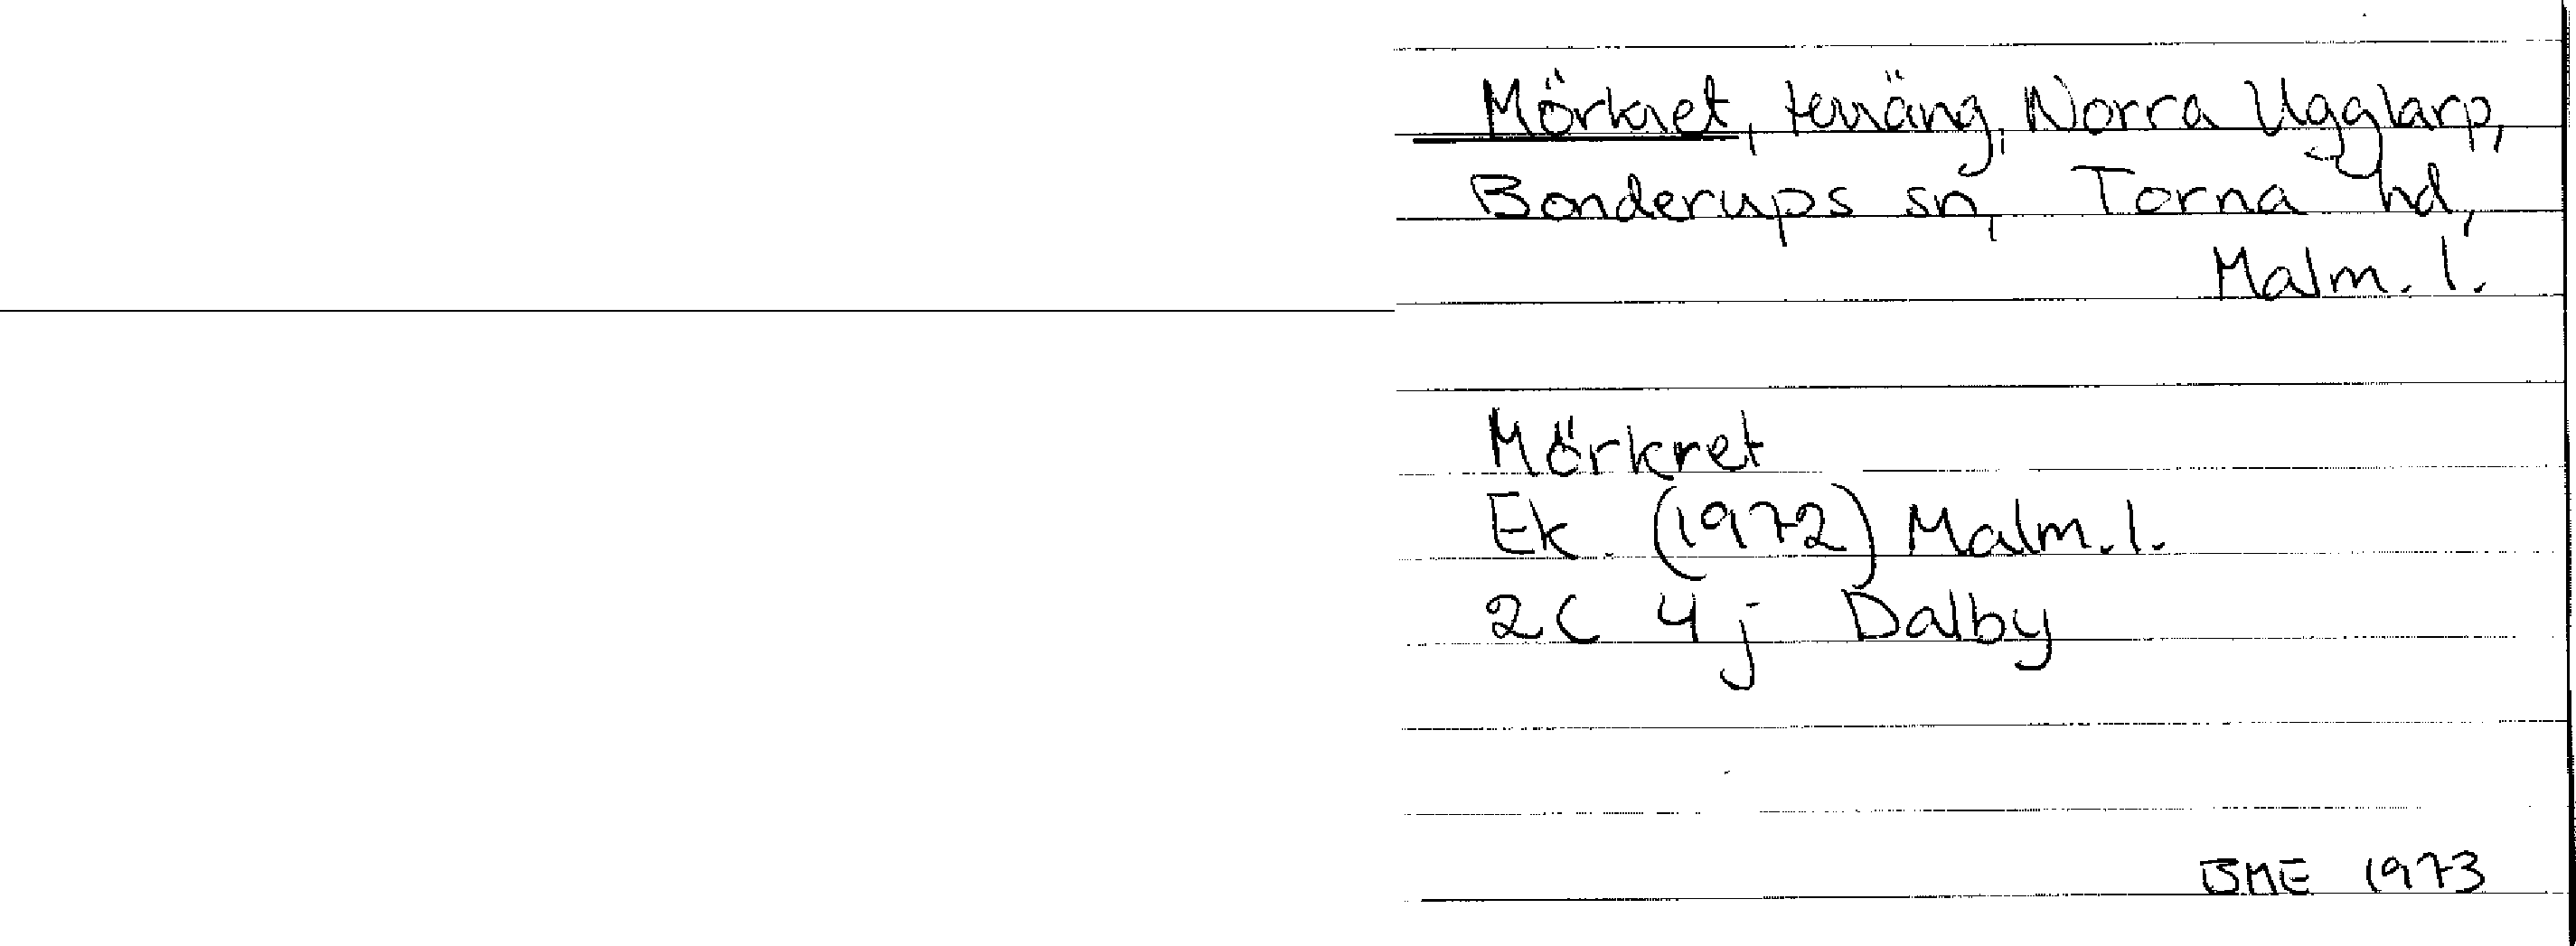 Mörkret, terräng, Norra Ugglarp,
Bonderups sn, Torna hd,
Malm. l.
Mörkret
Ek. (1972) Malm. l.
2C 4j Dalby
BME 1973